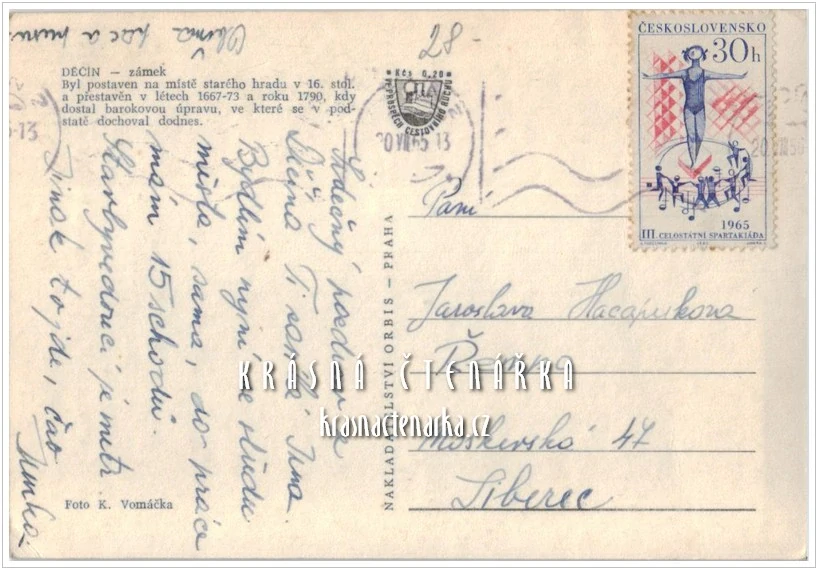 28-
DĚČÍN – zámek
Byl postaven na místě starého hradu v 16. stol.
a přestavěn v létech 1667-73 a roku 1790, kdy
dostal barokovou úpravu, ve které se v pod-
statě dochoval dodnes.
Kčs 0,20
20 VII 65 - 13
ČESKOSLOVENSKO
30h
1965
III. CELOSTÁTNÍ SPARTAKIÁDA
Srdečný pozdrav z
Děčína Ti zasílá Irma.
Bydlím nyní ve středu
města, sama, do práce
mám 15 schodů.
je mstr.
Jinak to jde, čao
NAKLADATELSTVÍ ORBIS – PRAHA
Paní
Jaroslava
Moskevská 47
Liberec
KRÁSNÁ ČTENÁŘKA
krasnactenarka.cz
Foto K. Vomáčka